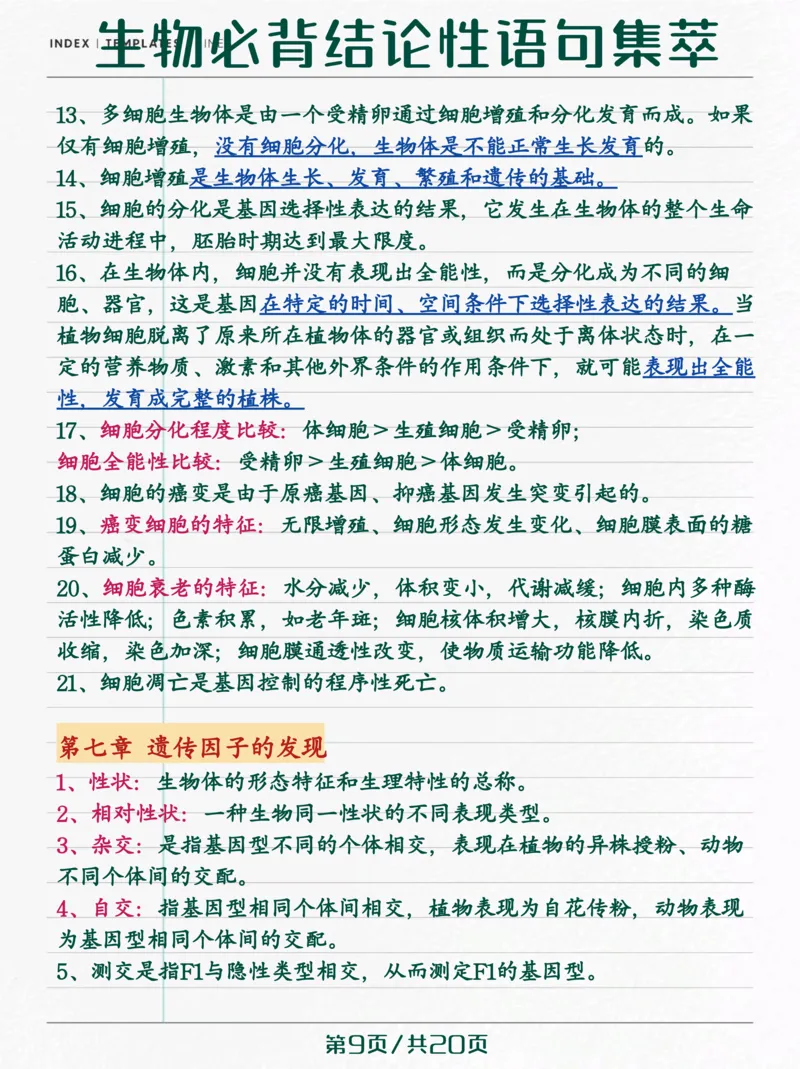 INDEX | TEMPLATES
生物必背结论性语句集萃
13、多细胞生物体是由一个受精卵通过细胞增殖和分化发育而成。如果
仅有细胞增殖，没有细胞分化，生物体是不能正常生长发育的。
14、细胞增殖是生物体生长、发育、繁殖和遗传的基础。
15、细胞的分化是基因选择性表达的结果，它发生在生物体的整个生命
活动进程中，胚胎时期达到最大限度。
16、在生物体内，细胞并没有表现出全能性，而是分化成为不同的细
胞、器官，这是基因在特定的时间、空间条件下选择性表达的结果。当
植物细胞脱离了原来所在植物体的器官或组织而处于离体状态时，在一
定的营养物质、激素和其他外界条件的作用条件下，就可能表现出全能
性，发育成完整的植株。
17、细胞分化程度比较：体细胞＞生殖细胞＞受精卵；
细胞全能性比较：受精卵＞生殖细胞＞体细胞。
18、细胞的癌变是由于原癌基因、抑癌基因发生突变引起的。
19、癌变细胞的特征：无限增殖、细胞形态发生变化、细胞膜表面的糖
蛋白减少。
20、细胞衰老的特征：水分减少，体积变小，代谢减缓；细胞内多种酶
活性降低；色素积累，如老年斑；细胞核体积增大，核膜内折，染色质
收缩，染色加深；细胞膜通透性改变，使物质运输功能降低。
21、细胞凋亡是基因控制的程序性死亡。
第七章 遗传因子的发现
1、性状：生物体的形态特征和生理特性的总称。
2、相对性状：一种生物同一性状的不同表现类型。
3、杂交：是指基因型不同的个体相交，表现在植物的异株授粉、动物
不同个体间的交配。
4、自交：指基因型相同个体间相交，植物表现为自花传粉，动物表现
为基因型相同个体间的交配。
5、测交是指F1与隐性类型相交，从而测定F1的基因型。
第9页/共20页